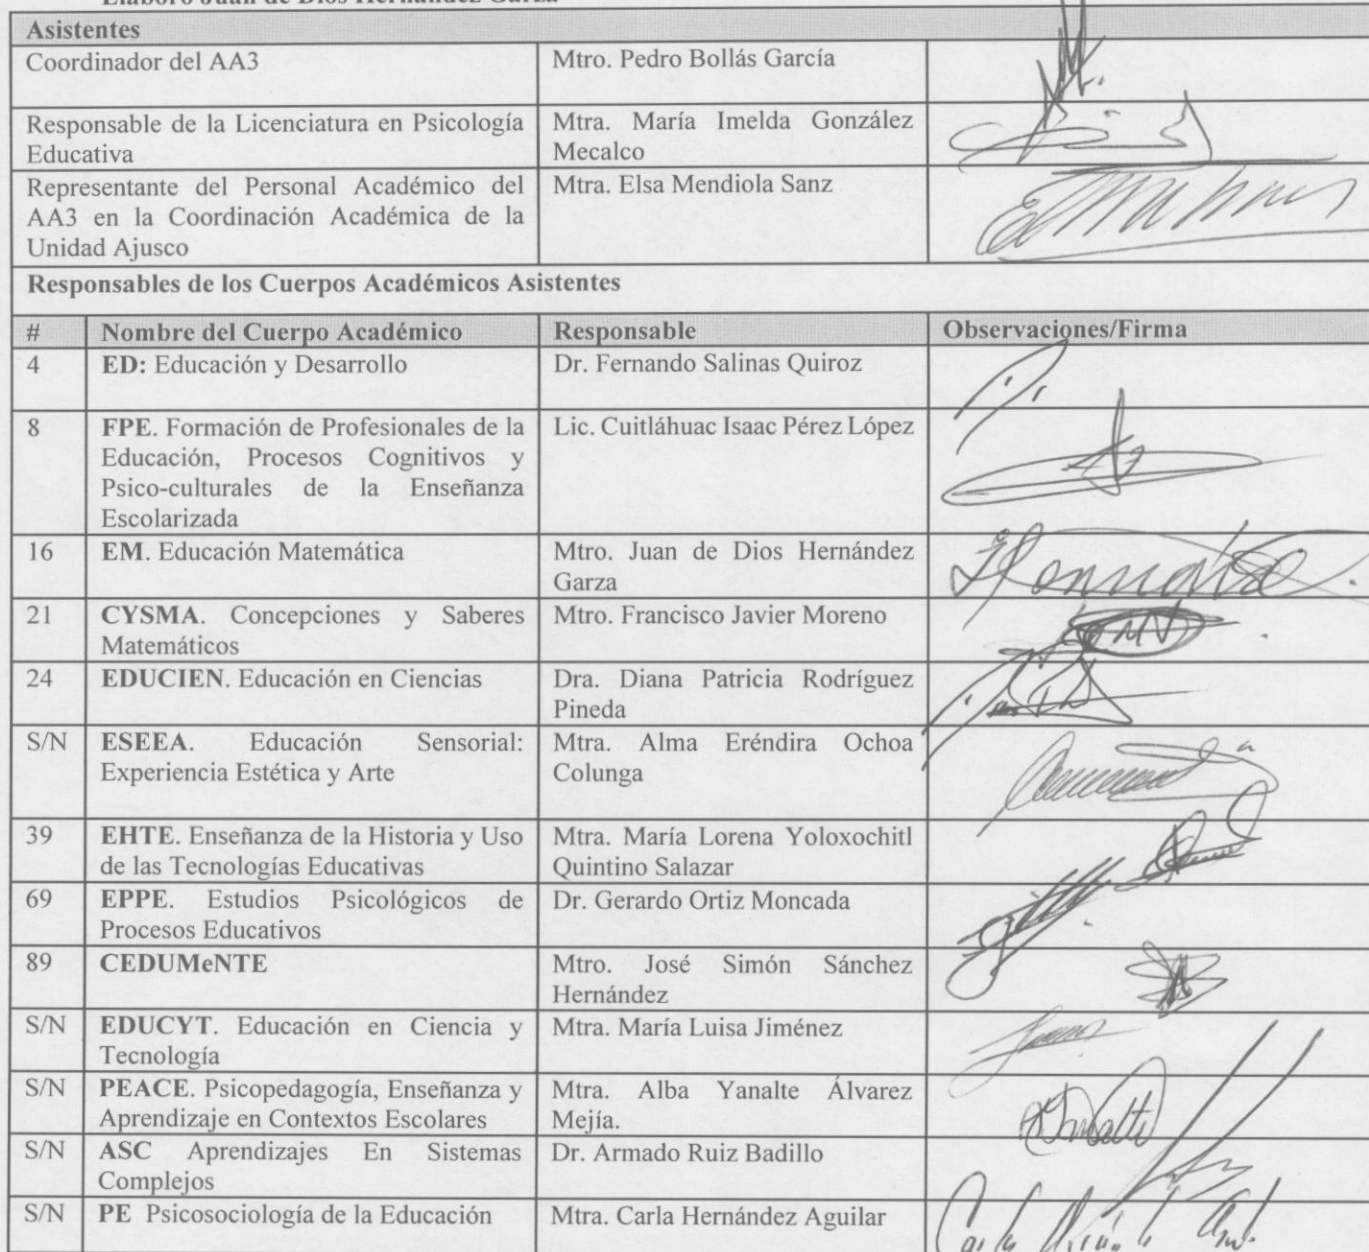 Elaboró Juan de Dios Hernández Garza
Asistentes
Coordinador del AA3
Mtro. Pedro Bollás García
Responsable de la Licenciatura en Psicología
Educativa
Mtra. María Imelda González
Mecalco
Representante del Personal Académico del
AA3 en la Coordinación Académica de la
Unidad Ajusco
Mtra. Elsa Mendiola Sanz
Responsables de los Cuerpos Académicos Asistentes
# Nombre del Cuerpo Académico Responsable Observaciones/Firma
4 ED: Educación y Desarrollo
Dr. Fernando Salinas Quiroz
8 FPE. Formación de Profesionales de la
Educación, Procesos Cognitivos y
Psico-culturales de la Enseñanza
Escolarizada
Lic. Cuitláhuac Isaac Pérez López
16 EM. Educación Matemática
Mtro. Juan de Dios Hernández
Garza
21 CYSMA. Concepciones y Saberes
Matemáticos
Mtro. Francisco Javier Moreno
24 EDUCIEN. Educación en Ciencias
Dra. Diana Patricia Rodríguez
Pineda
S/N ESEEA. Educación Sensorial:
Experiencia Estética y Arte
Mtra. Alma Eréndira Ochoa
Colunga
39 EHTE. Enseñanza de la Historia y Uso
de las Tecnologías Educativas
Mtra. María Lorena Yoloxochitl
Quintino Salazar
69 EPPE. Estudios Psicológicos de
Procesos Educativos
Dr. Gerardo Ortiz Moncada
89 CEDUMeNTE
Mtro. José Simón Sánchez
Hernández
S/N EDUCYT. Educación en Ciencia y
Tecnología
Mtra. María Luisa Jiménez
S/N PEACE. Psicopedagogía, Enseñanza y
Aprendizaje en Contextos Escolares
Mtra. Alba Yanalte Álvarez
Mejía.
S/N ASC Aprendizajes En Sistemas
Complejos
Dr. Armado Ruiz Badillo
S/N PE Psicosociología de la Educación
Mtra. Carla Hernández Aguilar